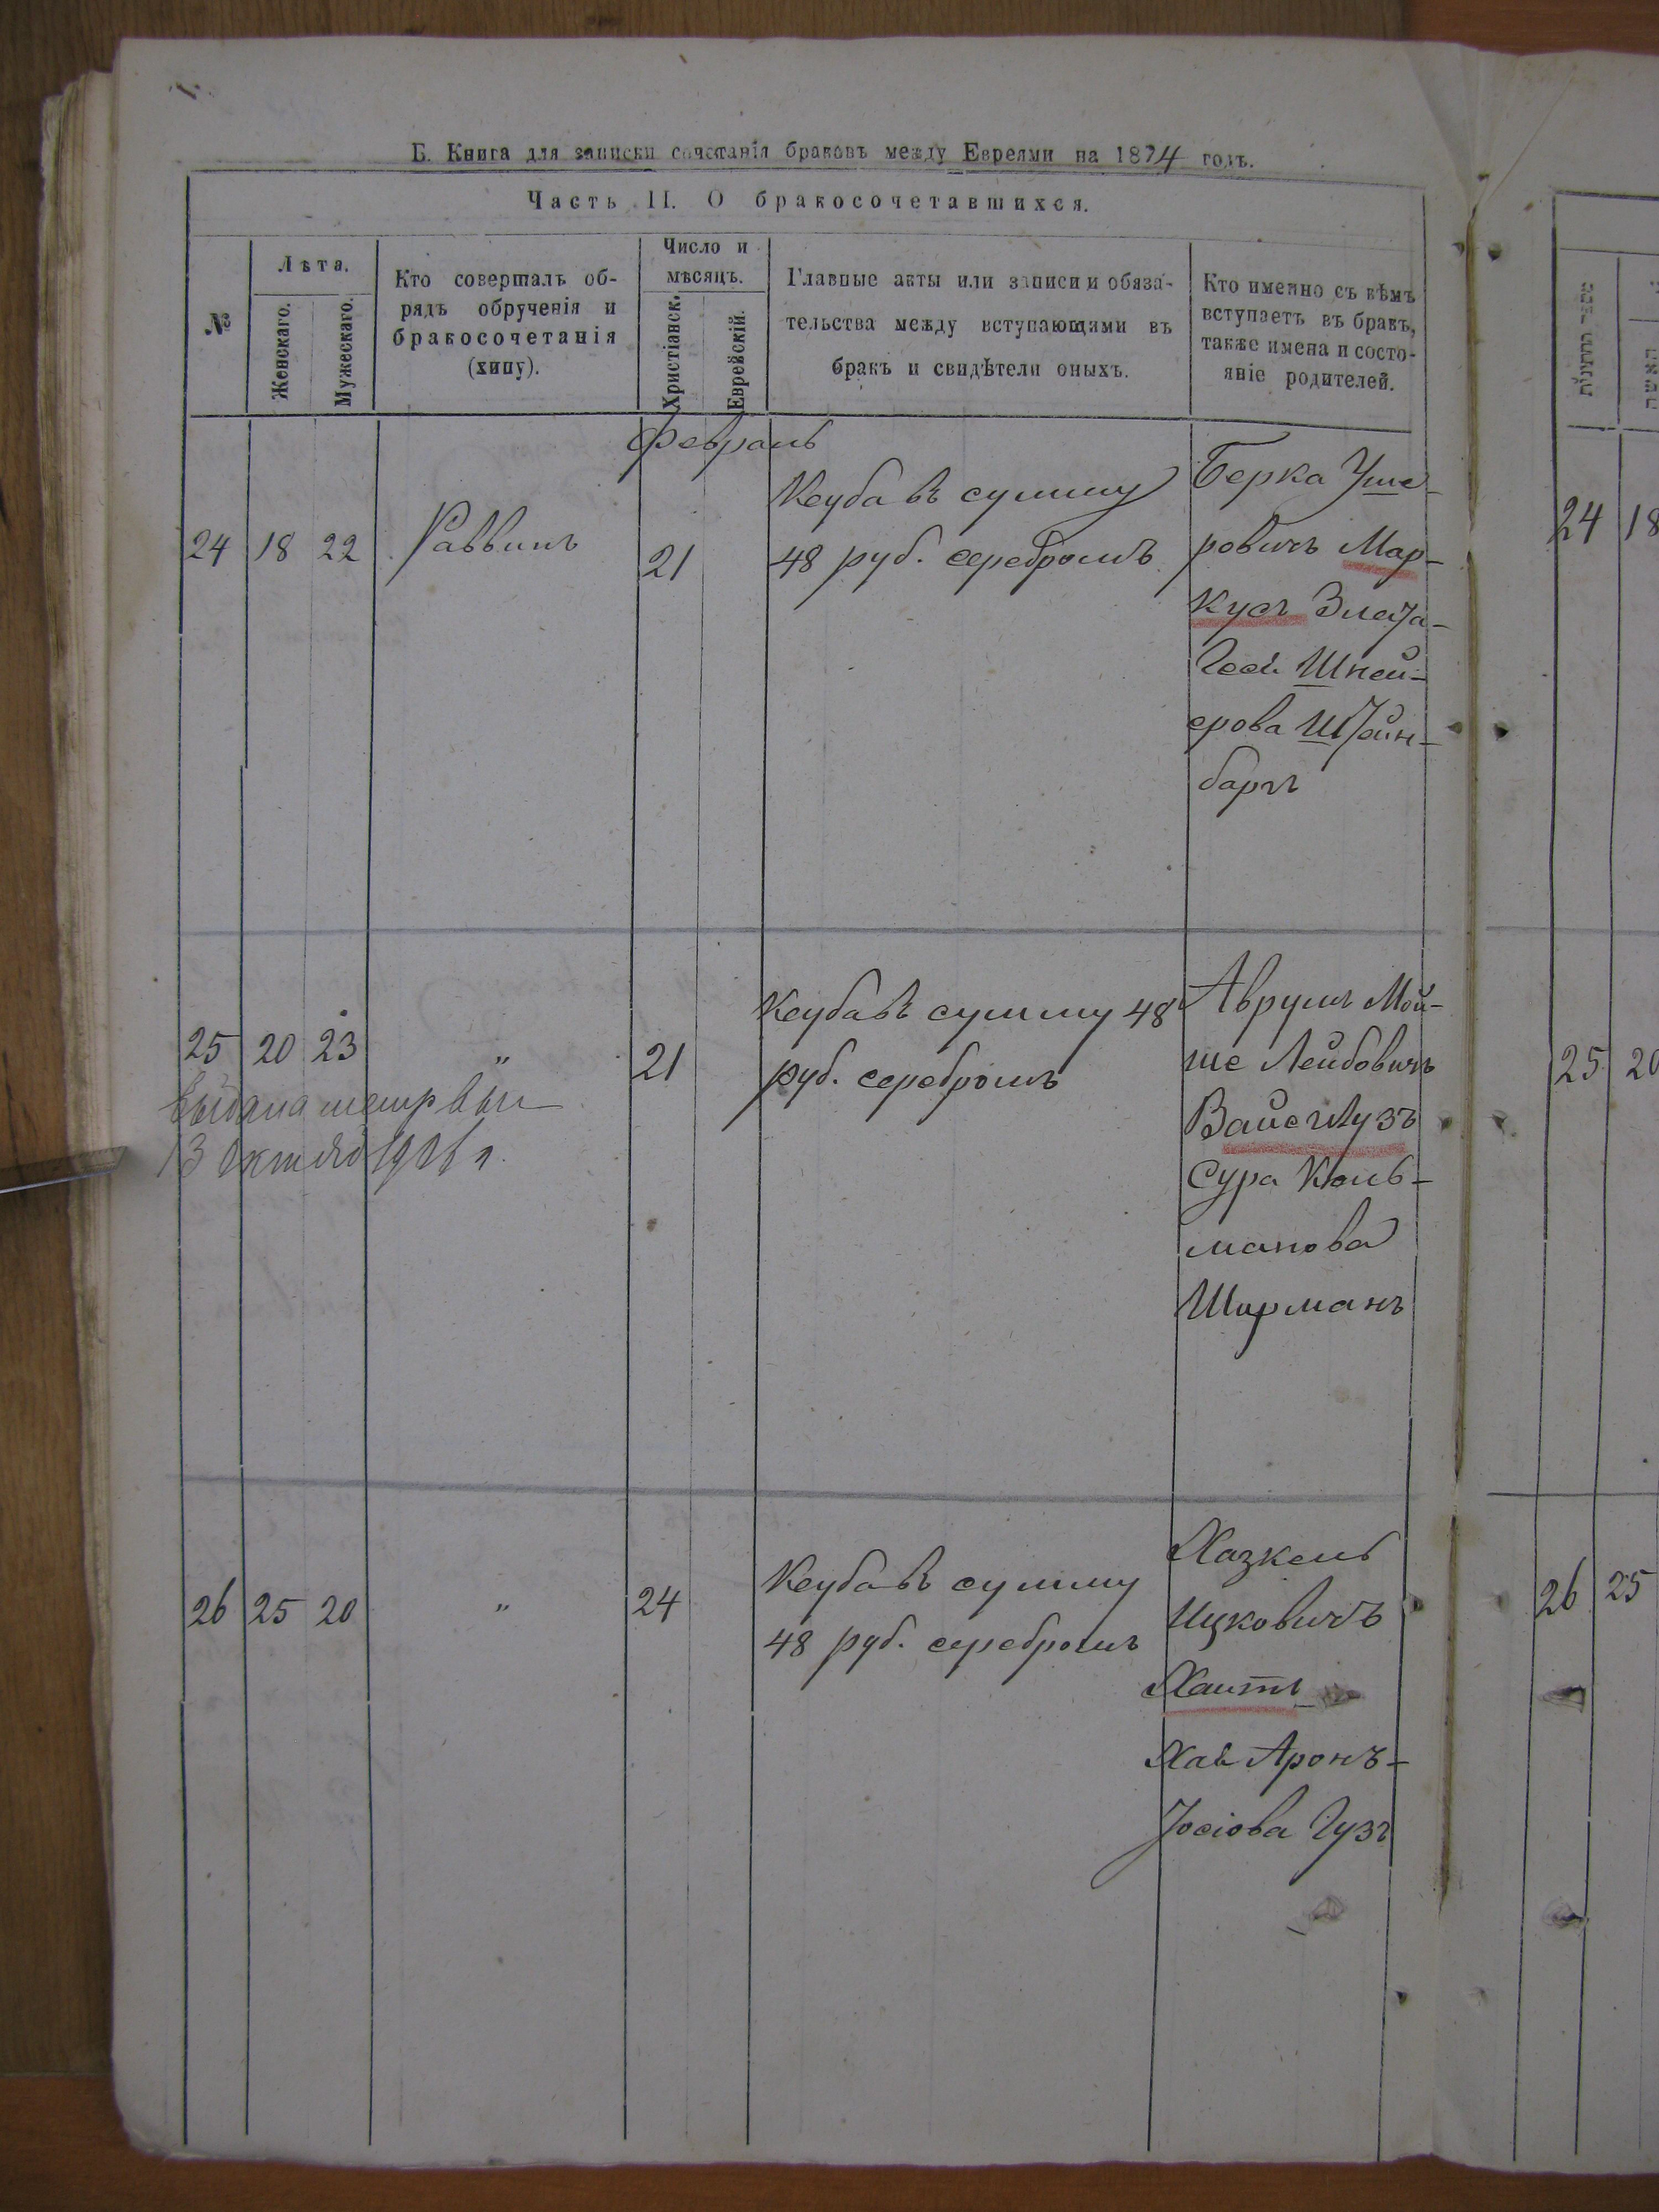 Б. Книга для записки сочетанія браковъ между Евреями на 1874 годъ.
Часть II. О бракосочетавшихся.
№
Лѣта.
Женскаго.
Мужескаго.
Кто совершалъ об-
рядъ обрученія и
бракосочетанія
(хипу).
Число и
мѣсяцъ.
Христіанск.
Еврейскій.
Главные акты или записи и обяза-
тельства между вступающими въ
бракъ и свидѣтели оныхъ.
Кто именно съ кѣмъ
вступаетъ въ бракъ,
также имена и состо-
яніе родителей.
Февраль
24 18 22 Раввинъ 21
Кеуба въ сумму
48 руб. серебромъ
Берка Уше-
ровичъ Мар-
кусъ Злата-
Гося Шней-
ерова Штайн-
баргъ
25 20 23 „ 21
Кеуба въ сумму 48
руб. серебромъ
Аврумъ Мой-
ше Лейбовичъ
Вайсглузъ
Сура Кюль-
манова
Ширманъ
13 Октяб
26 25 20 „ 24
Кеуба въ сумму
48 руб. серебромъ
Хазкель
Ицковичъ
Хаитъ
Хая Аронъ-
Іосіова Гузъ
24 18
25 20
26 25